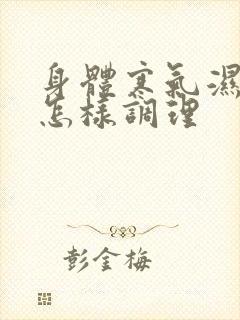 身體寒氣濕
怎樣調理
彭金梅